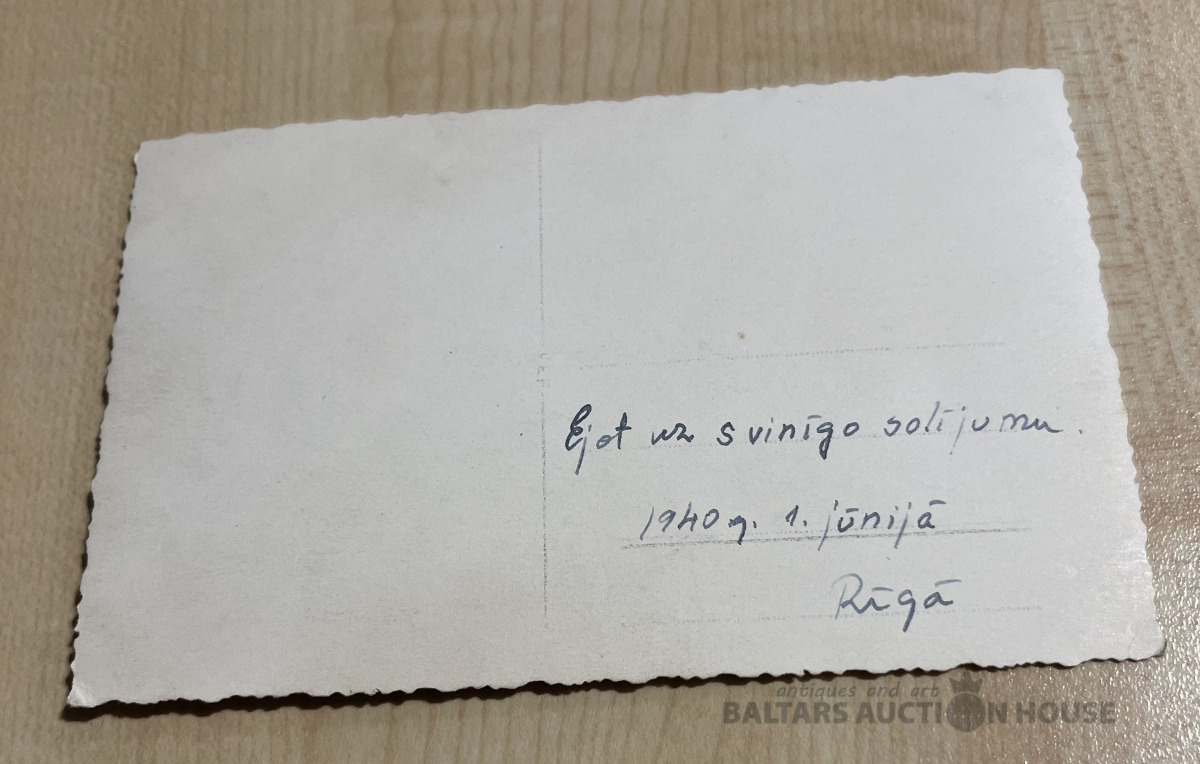 Ejot uz svinīgo solījumu.
1940 g. 1. jūnijā
Rīgā
antiques and art
BALTARS AUCTION HOUSE